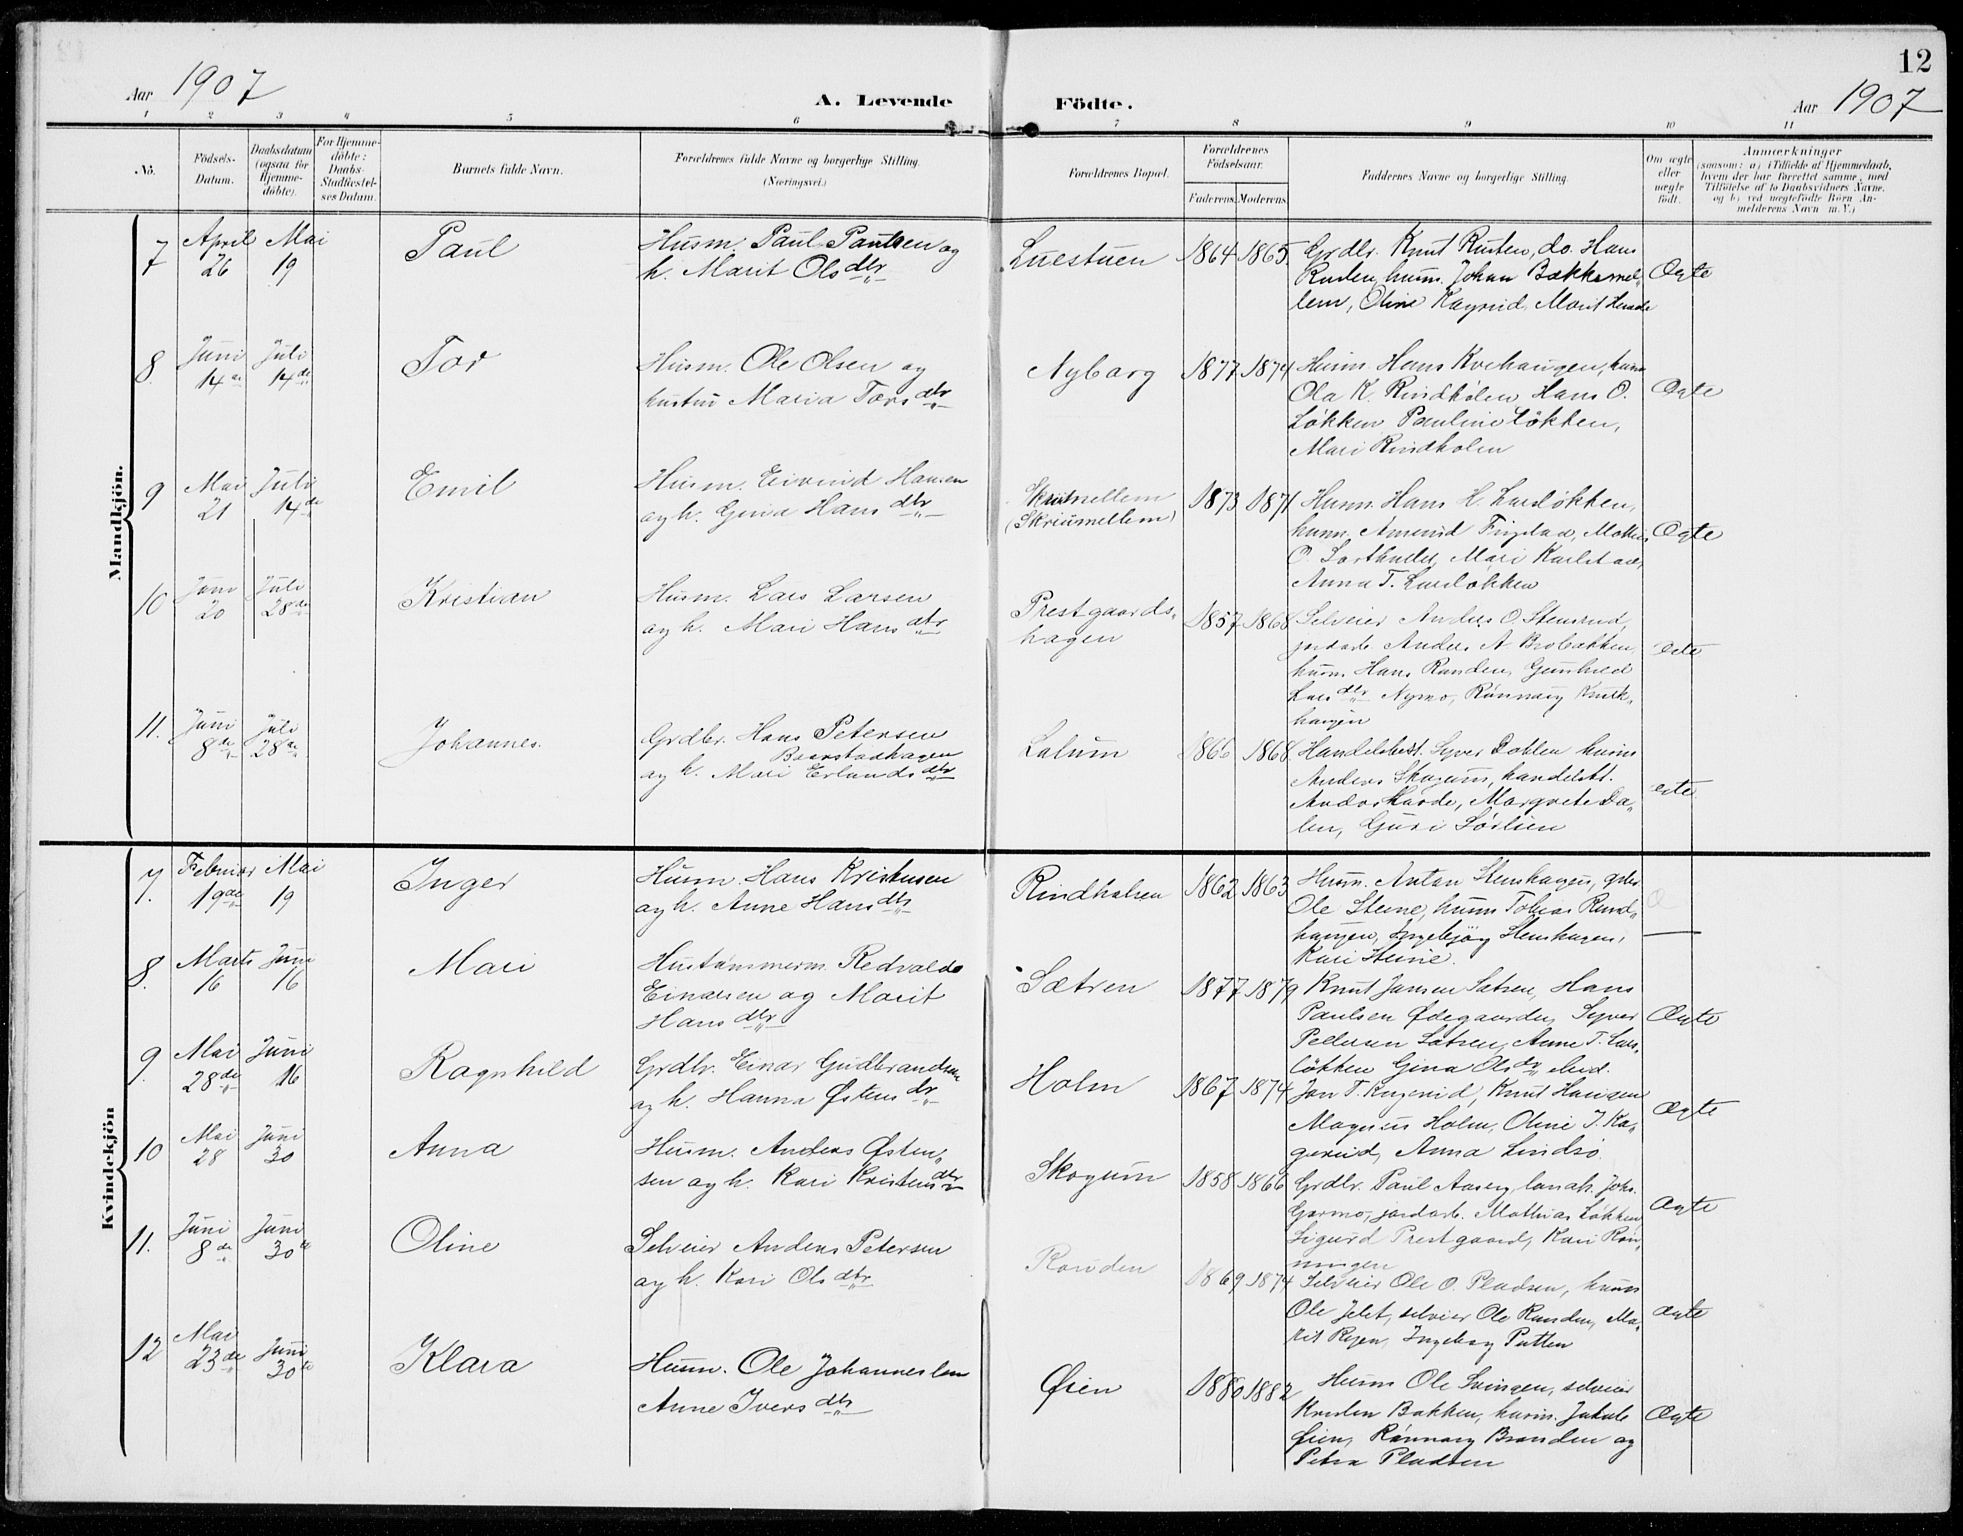 12
Aar 1907
A. Levende Födte.
Aar 1907
1 2 3 4 5 6 7 8 9 10 11
No.
Födsels-Datum.
Daabsdatum (ogsaa for Hjemmedöbte).
For Hjemmedöbte: Daabs-Stadfæstelses Datum.
Barnets fulde Navn.
Forældrenes fulde Navne og borgerlige Stilling. (Næringsvei.)
Forældrenes Bopæl.
Forældrenes Födselsaar.
Faderens. Moderens.
Faddernes Navne og borgerlige Stilling.
Om ægte eller uægte födt.
Anmærkninger
(saasom: a) i Tilfælde af Hjemmedaab, hvem der har forrettet samme, med Tilföielse af to Daabsvidners Navne, og b) ved uægtefödte Börn Anmelderens Navn m. V.)
Mandkjön.
7 April 26 Mai 19 Paul
Husm. Paul Paulsen og
h. Marit Olsdtr
Luestuen 1864 1865
Grdbr. Knut Rusten, do. Hans
Ruden, husm. Johan Bakkemel-
lem, Oline Kagrud, Marit
Ægte
8. Juni 14de Juli 14de Tor
Husm. Ole Olsen og
hustru Maria Torsdtr
Nyborg 1877 1874
Husm. Hans Kvehaugen, husm
Ola K. Rindhölen Hans O.
Løkken Pauline Løkken,
Mari Rindholen
Ægte
9 Mai 21 Juli 14de Emil
Husm. Eivind Hansen
og h. Gina Hansdtr
Skriumellem
(Skriumellem)
1873 1871
Husm. Hans H. Larsløkken,
husm.
O.
Anna T. Larsløkken
Ægte
10 Juni 20 Juli 28de Kristian
Husm. Lars Larsen
og h. Mari Hansdtr
Prestgaards-
hagen
1857 1868
Selveier Anders O. Stensrud,
jordarb. Anders A. Brobakken
husm. Hans Randen, Gunhild
Larsdtr Nymo, Rönnaug Knuk-
haugen
ægte
11. Juni 8de Juli 28de Johannes.
Grdbr. Hans Petersen
Baarstadhagen
og h. Mari Erlandsdtr
Lalum 1866 1868
Handelsbest. Syver Dahlen husm
Anders Skogum, handelsb.
Anders Harde, Margrete Da-
len, Guri Sörlien
ægte
Kvindekjön
7. Februar 19de Mai 19 Inger
Husm. Hans Kristensen
og h. Anne Hansdtr
Rindhalsen 1862 1863
Husm. Anton Stenshagen, gdbr
Ole Steine, husm Tobias Rund-
haugen, Ingebjørg Stenshagen,
Kari Steine.
8. Marts 16 Juni 16 Mari
Hustømmerm. Redvald
Einarsen og Marit
Hansdtr
Sætren 1877 1879
Knut Jansen Sætren, Hans
Paulsen Ødegaarden, Syver
Pedersen Sætren, Anne T. Lars-
løkken Gina Olsdtr ibid.
Ægte
9. Mai 28de Juni 16 Ragnhild
Grdbr. Einar Gudbrandsen
og h. Hanna Østensdtr
Holm 1867 1874
Jon T. Kagerud, Knut Haugen
Magnus Holm, Oline J. Ka-
gerud, Anna Lindsø
Ægte
10 Mai 28 Juni 30 Anna
Husm. Anders Østen-
sen og h. Kari Kristensdtr
Skogum 1858 1866
Grdbr. Paul Aasen, landh. Johs.
Garmo, jordarb. Mathias Løkken
Sigurd Prestgaard, Kari Røn-
ningen
Ægte
11. Juni 8de Juni 30te Oline
Selveier Anders Petersen
og h. Kari Olsdtr
Randen 1869 1874
Selveier Ole O. Pladsen, husm
Ole Jelet, selveier Ole Randen, Ma-
rit Ryen, Ingeborg Putten
ægte
12 Mai 23de Juni 30te Klara
Husm. Ole Johanneslen
Anne Iversdtr
Øien 1880 1882
Husm Ole Svingen, selveier
Kristen Bakken, husm. Jakob
Øien, Rønnaug Branden og
Petra Pladsen
Ægte